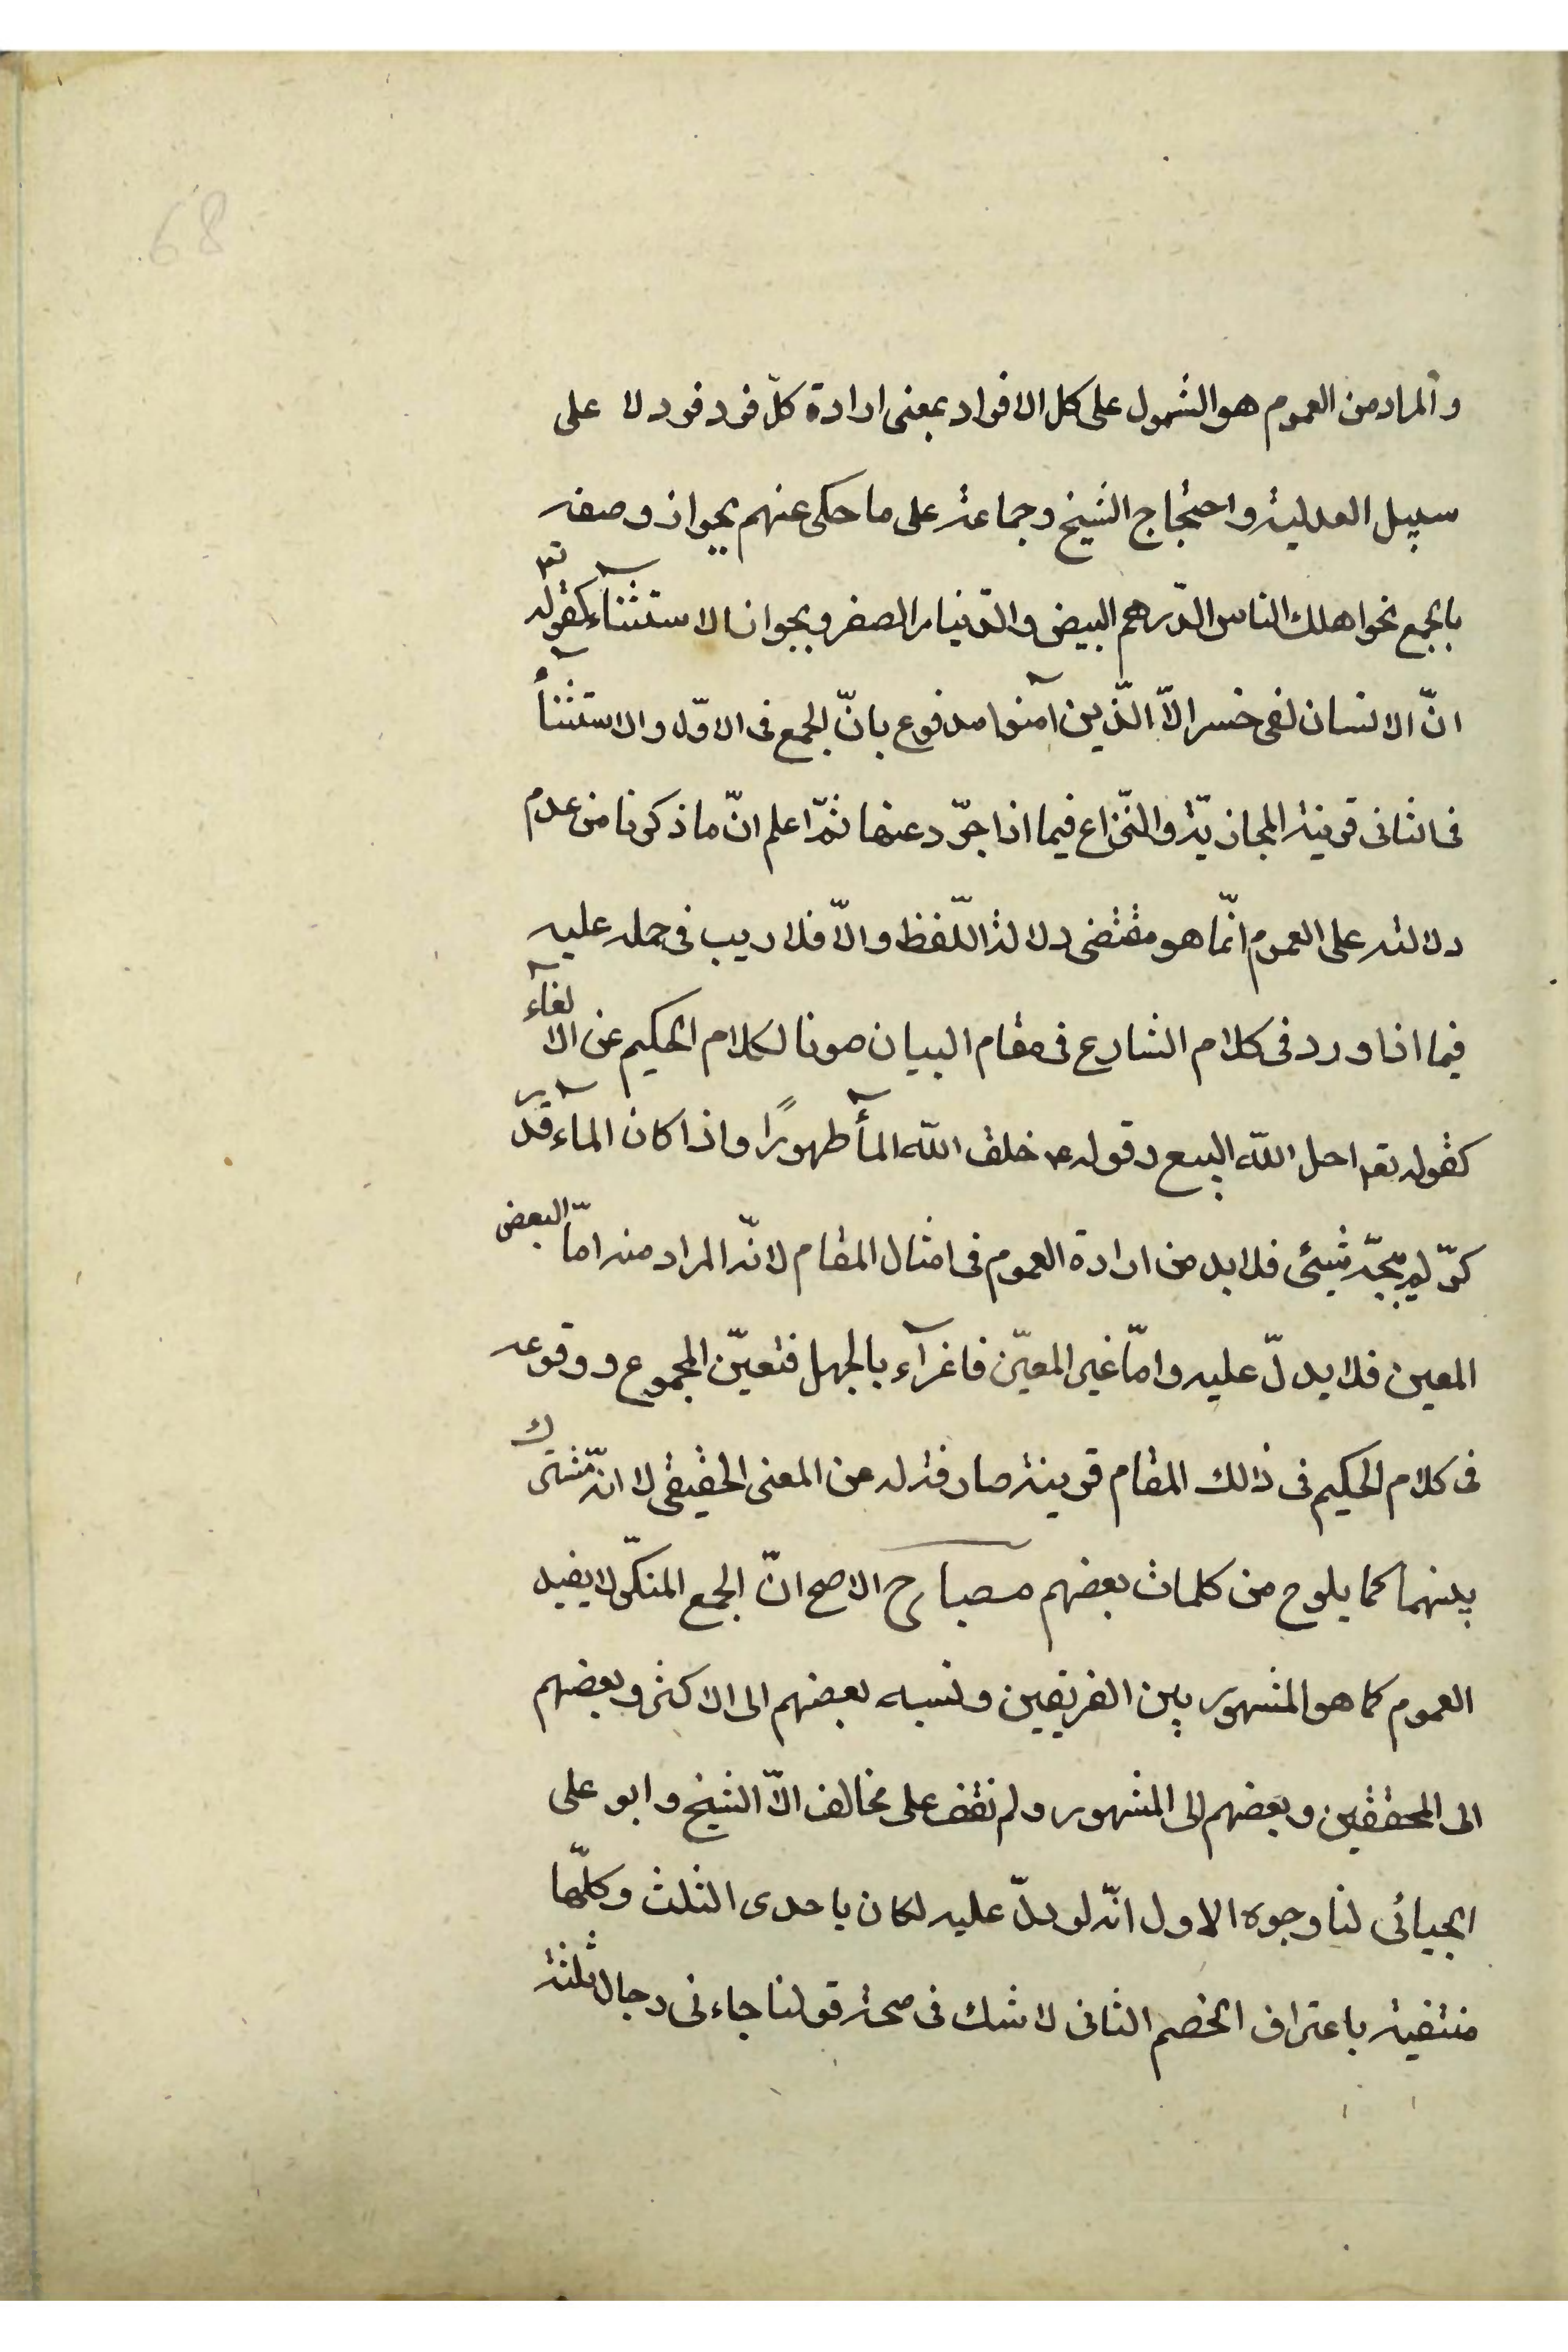 68
والمراد من العموم هو الشمول على كل الافراد بمعنى ارادة كلّ فرد فرد لا على
سبيل البدلية واحتجاج الشيخ وجماعة على ما حكى عنهم بجواز وصفه
بالجمع نحو اهلك الناس الدّرهم البيض والدّينار الصفر وبجواز الاستثنآء كقوله تعـ
انّ الانسان لفى خسر الاّ الذّين آمنوا مدفوع بانّ الجمع فى الاوّل والاستثنآء
فى الثانى قرينة المجازيّة والنّزاع فيما اذا جرّد عنها ثمّ اعلم انّ ما ذكرنا من عدم
دلالته على العموم انّما هو مقتضى دلالة اللّفظ والاّ فلا ريب فى حمله عليه
فيما اذا ورد فى كلام الشارع فى مقام البيان صونا لكلام الحكيم عن الالغآء
كقوله تعـ احل اللّه البيع وقوله ع خلق اللّه المأ طهورًا واذا كان المآء قدر
كرّ لم ينجّسه شيئ فلابد من ارادة العموم فى امثال المقام لانّه المراد منه امّا البعض
المعين فلا يدلّ عليه وامّا غير المعيّن فاغرآء بالجهل فتعيّن المجموع ووقوعه
فى كلام الحكيم فى ذالك المقام قرينة صارفة له عن المعنى الحقيقى لا انّه مشترك
بينهما كما يلوح من كلمات بعضهم مصباح الاصح انّ الجمع المنكّر لا يفيد
العموم كما هو المشهور بين الفريقين ونسبه بعضهم الى الاكثر وبعضهم
الى المحققين وبعضهم الى المشهور ولم نقف على مخالف الاّ الشيخ وابو على
الجبائى لنا وجوه الاول انّه لو دلّ عليه لكان باحدى الثلث وكلّها
منتفية باعتراف الخصم الثانى لا شك فى صحة قولنا جاءنى رجال ثلثة